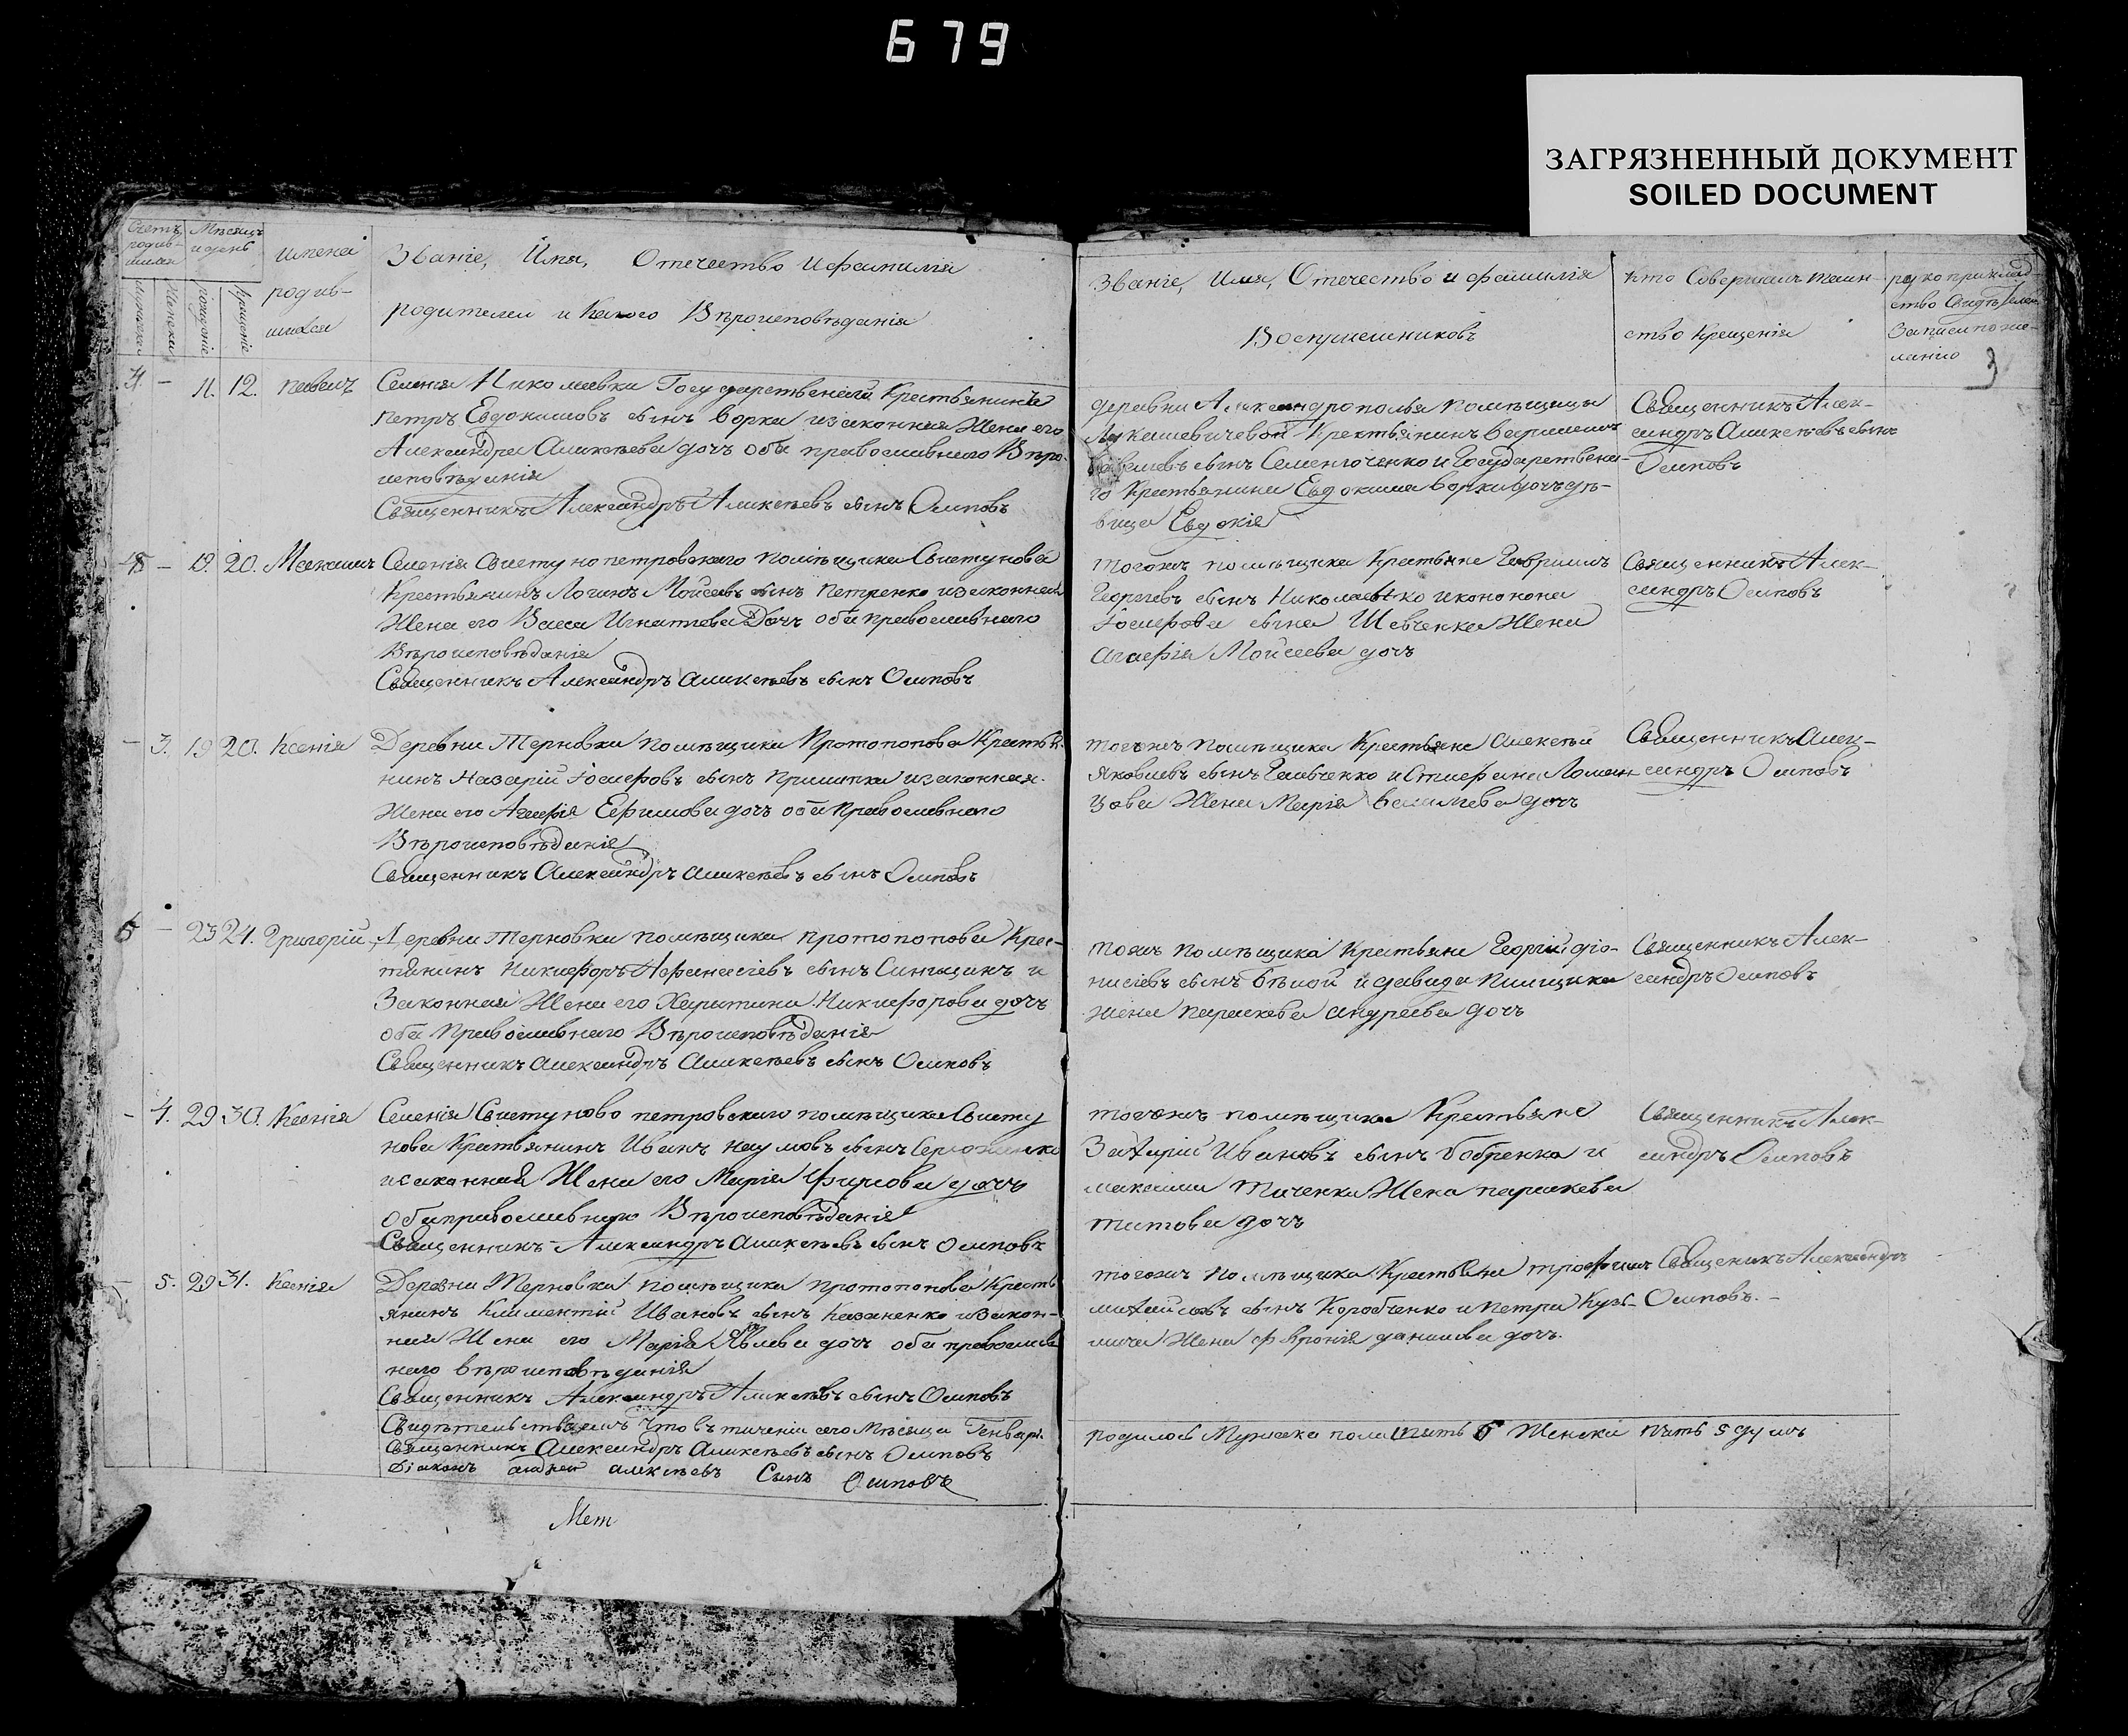 679
ЗАГРЯЗНЕННЫЙ ДОКУМЕНТ
SOILED DOCUMENT
Счетъ родив-шихся
Мѣсяцъ и день
имена родив-шихся
Званіе, Имя, Отечество и фамилія
родителей и Какого Вѣроисповѣданія
Званіе, Имя, Отечество и фамилія
Воспріемниковъ
кто Совершалъ таин-
ство Крещенія
рукоприклад-
ство Свидѣтелей
Записи по же-
ланію
3
мужеска
женска
рожденіе
крещеніе
4. — 11. 12. Павелъ
Селенія Николаевки Государственный Крестьянинъ
Петръ Евдокимовъ сынъ Борка и законная Жена его
Александра Алексѣева дочь оба православнаго Вѣро-
исповѣданія
Священникъ Александръ Алексѣевъ сынъ Осиповъ
деревни Александрополья помѣщицы
Лукашевичевой Крестьянинъ
сынъ Семенюченко и Государственна-
го Крестьянина Евдокима Борки дочь дѣ-
вица Евдокія
Священникъ Алек-
сандръ Алексѣевъ сынъ
Осиповъ
5 — 19. 20. Максимъ
Селенія Свистунопетровского помѣщика Свистунова
Крестьянинъ Логинъ Мойсеевъ сынъ Петренко и законная
Жена его Васса Игнатіева Дочь оба православнаго
Вѣроисповѣданія
Священникъ Александръ Алексѣевъ сынъ Осиповъ
тогожъ помѣщика Крестьяне Гавріилъ
Георгіевъ сынъ Николаенко и конона
Іосифова сына Шевченка Жена
Агафія Мойсеева дочь
Священникъ Алек-
сандръ Осиповъ
— 3. 19 20. Ксенія
Деревни Терновки помѣщика Протопопова Крестья-
нинъ Назарій Іосифовъ сынъ Припитка и законная
Жена его Агафія Ефимова дочь оба Православнаго
Вѣроисповѣданія
Священникъ Александръ Алексѣевъ сынъ Осиповъ
тогожъ помѣщика Крестьяне Алексѣй
Яковлевъ сынъ Гальченко и Стефана
Жена Марія Васильева дочь
Священникъ Алек-
сандръ Осиповъ
5 — 23 24. Григорій
Деревни Терновки помѣщика протопопова Крес-
тянинъ Никифоръ Афанасіевъ сынъ и
Законная Жена его Харытина Никифорова дочь
оба Православнаго Вѣроисповѣданія
Священникъ Александръ Алексѣевъ сынъ Осиповъ
тожъ помѣщика Крестьяне Георгій діо-
нисіевъ сынъ Бѣлой и давида
жена параскева андреева дочь
Священникъ Алек-
сандръ Осиповъ
— 4. 29 30. Ксенія
Селенія Свистуново петровского помѣщика Свисту
нова Крестьянинъ Иванъ наумовъ сынъ
и законная Жена его Марія Фирсова дочь
оба православнаго Вѣроисповѣданія
Священникъ Александръ Алексѣевъ сынъ Осиповъ
тогожъ помѣщика Крестьяне
Захарій Ивановъ сынъ Бобренко и
максима Жена параскева
титова дочь
Священникъ Алек-
сандръ Осиповъ
— 5. 29 31. Ксенія
Деревни Терновки помѣщика протопопова Кресть
янинъ Климентій Ивановъ сынъ Казаненко и закон-
ная Жена его Марія дочь оба православ
наго вѣроисповѣданія
Священникъ Александръ Алексѣевъ сынъ Осиповъ
тогожъ помѣщика Крестьяне трофимъ
михайловъ сынъ Коробченко и петра Кузь-
мича Жена данилова дочь.
Священникъ Александръ
Осиповъ. —
Свидѣтельствуемъ что въ теченіи сего Мѣсяца Генваря
Священникъ Александръ Алексѣевъ сынъ Осиповъ
Діаконъ андрей алексѣевъ Сынъ Осиповъ
родилось Мужеска пола пять 5 Женска пять 5 душъ
Мет